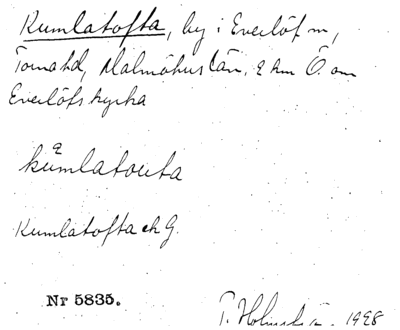 Kumlatofta, by i Everlöf sn,
Torna hd, Malmöhus län. 2 km Ö. om
Everlöfs kyrka
kumlatouta
Kumlatofta ek G.
Nr 5835.
T. Holmström. 1928